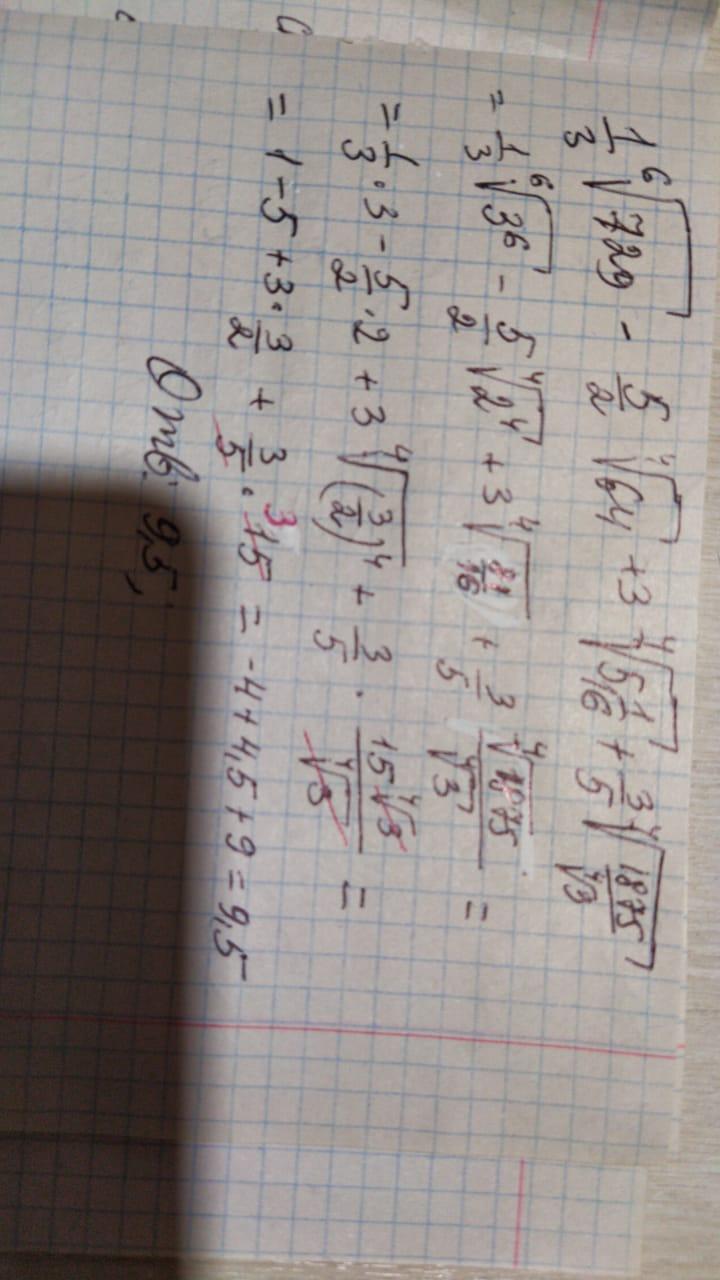 1/3 ⁶√729 - 5/2 ⁴√64 + 3 ⁴√(5 1/16) + 3/5 ⁴√1875/⁴√3
= 1/3 ⁶√3⁶ - 5/2 ⁴√2⁴ + 3 ⁴√(81/16) + 3/5 ⁴√1875/⁴√3 =
= 1/3 · 3 - 5/2 · 2 + 3 ⁴√(3/2)⁴ + 3/5 · 15⁴√3/⁴√3 =
= 1 - 5 + 3 · 3/2 + 3/5 · 15 3 = -4 + 4,5 + 9 = 9,5
Отв: 9,5;